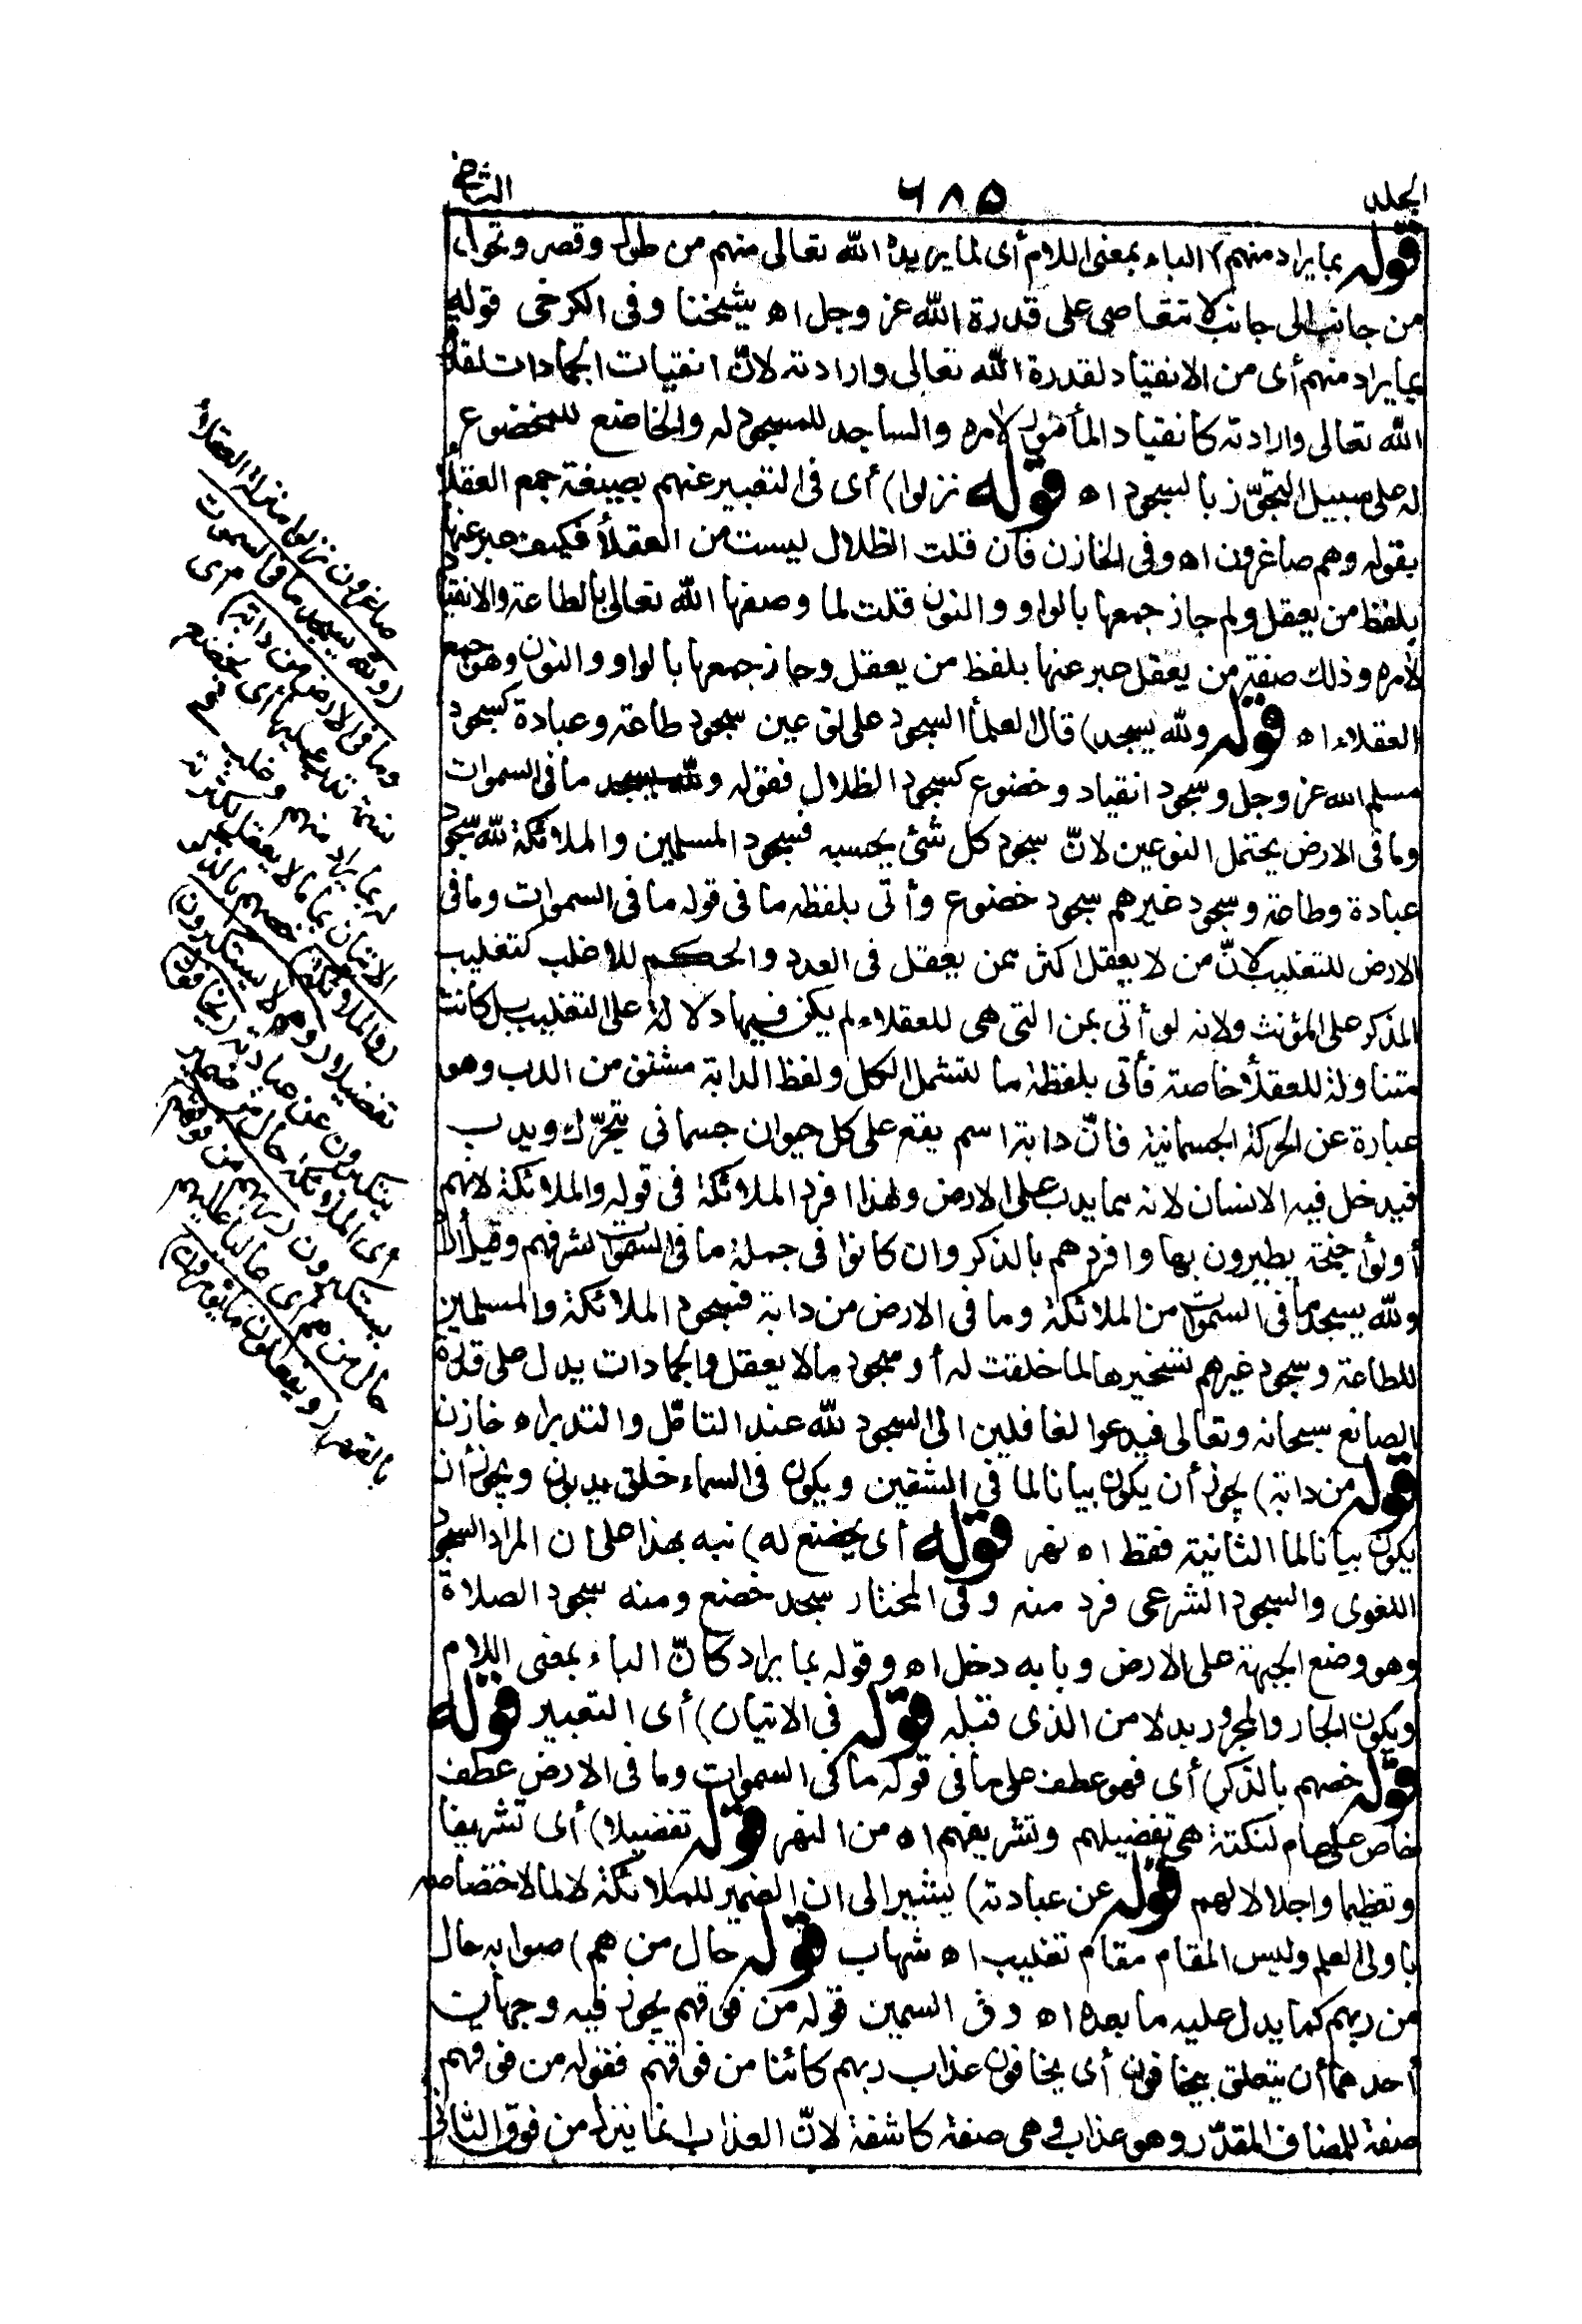 الجلد
٦٨٥
الثانى
قوله بما يراد منهم) الباء بمعنى اللام أى لما يريده الله تعالى منهم من طول وقصر وتحول
من جانب الى جانب لا تتعاصى على قدرة الله عز وجل اه شيخنا وفى الكرخى قوله
بما يراد منهم أى من الانقياد لقدرة الله تعالى وارادته لانّ انقيات الجمادات لقدرة
الله تعالى وارادته كانقياد المأمور لامره والساجد للمسجود له والخاضع للمخضوع
له على سبيل التجوّز بالسجود اه قوله نزلوا) أى فى التعبير عنهم بصيغة جمع العقلاء
بقوله وهم صاغرون اه وفى الخازن فان قلت الظلال ليست من العقلأ فكيف عبر عنها
بلفظ من يعقل ولم جاز جمعها بالواو والنون قلت لما وصفها الله تعالى بالطاعة والانقياد
لأمره وذلك صفة من يعقل عبر عنها بلفظ من يعقل وجاز جمعها بالواو والنون وهو جمع
العقلاء اه قوله ولله يسجد) قال العلمأ السجود على نوعين سجود طاعة وعبادة كسجود
مسلم الله عز وجل وسجود انقياد وخضوع كسجود الظلال فقوله ولله يسجد ما فى السموات
وما فى الارض يحتمل النوعين لانّ سجود كل شئ بحسبه فسجود المسلمين والملائكة لله سجود
عبادة وطاعة وسجود غيرهم سجود خضوع وأتى بلفظه ما فى قوله ما فى السموات وما فى
الارض للتغليب لانّ من لا يعقل اكثر ممن يعقل فى العدد والحكم للاغلب كتغليب
المذكر على المؤنث ولانه لو أتى بمن التى هى للعقلاء لم يكن فيها دلالة على التغليب بل كانت
متناولة للعقلأ خاصة فأتى بلفظة ما لتشمل الكل ولفظ الدابة مشتق من الدب وهو
عبارة عن الحركة الجسمانية فانّ دابة اسم يقع على كل حيوان جسمانى يتحرّك ويدب
فيدخل فيه الانسان لانه مما يدب على الارض ولهذا افرد الملائكة فى قوله والملائكة لانهم
أولوأجنحة يطيرون بها وافردهم بالذكر وان كانوا فى جملة ما فى السموات لشرفهم وقيل أراد
ولله يسجد ما فى السموات من الملائكة وما فى الارض من دابة فسجود الملائكة والمسلمين
للطاعة وسجود غيرهم تسخيرها لما خلقت له أو سجود مالا يعقل والجمادات يدل على قدرة
الصانع سبحانه وتعالى فيدعوا لغافلين الى السجود لله عند التأمّل والتدبر اه خازن
قوله من دابة) يجوز أن يكون بيانا لما فى الشقين ويكون فى السماء خلق يدبون ويجوز أن
يكون بيانا لما الثانية فقط اه نهر قوله أى يخضع له) نبه بهذا على ان المراد السجود
اللغوى والسجود الشرعى فرد منه وفى المختار سجد خضع ومنه سجود الصلاة
وهو وضع الجبهة على الارض وبابه دخل اه وقوله بما يراد كانّ الباء بمعنى اللام
ويكون الجار والمجرور بدلا من الذى قبله قوله فى الاتيان) أى التعبير قوله
قوله خصهم بالذكر) أى فهو عطف على ما فى قوله ما فى السموات وما فى الارض عطف
خاص على عام لنكتة هى تفضيلهم وتشريفهم اه من النهر قوله تفضيلا) أى تشريفا
وتعظيما واجلالا لهم قوله عن عبادته) يشير الى ان الضمير للملائكة لا لما لاختصاصه
باولى العلم وليس المقام مقام تغليب اه شهاب قوله حال من هم) صوابه حال
من ربهم كما يدل عليه ما بعده اه وفى السمين قوله من فوقهم يجوز فيه وجهان
أحدهما أن يتعلق بيخافون أى يخافون عذاب ربهم كائنا من فوقهم فقوله من فوقهم
صفة للمضاف المقدّر وهو عذاب وهى صفة كاشفة لانّ العذاب انما ينزل من فوق الثانى
صاغرون نزلوا منزلة العقلاء
(ولله يسجد ما فى السموت
وما فى الارض من دابة) أى
نسمة تدب عليها أى يخضع
له بما يراد منه وغلب فى
الاتيان بما ما لا يعقل لكثرته
(والملائكة) خصهم بالذكر
تفضيلا (وهم لا يستكبرون)
يتكبرون عن عبادته (يخافون)
أى الملائكة حال من ضمير
يستكبرون (ربهم من فوقهم)
حال من هم أى عاليا عليهم
بالقهر (ويفعلون ما يؤمرون)